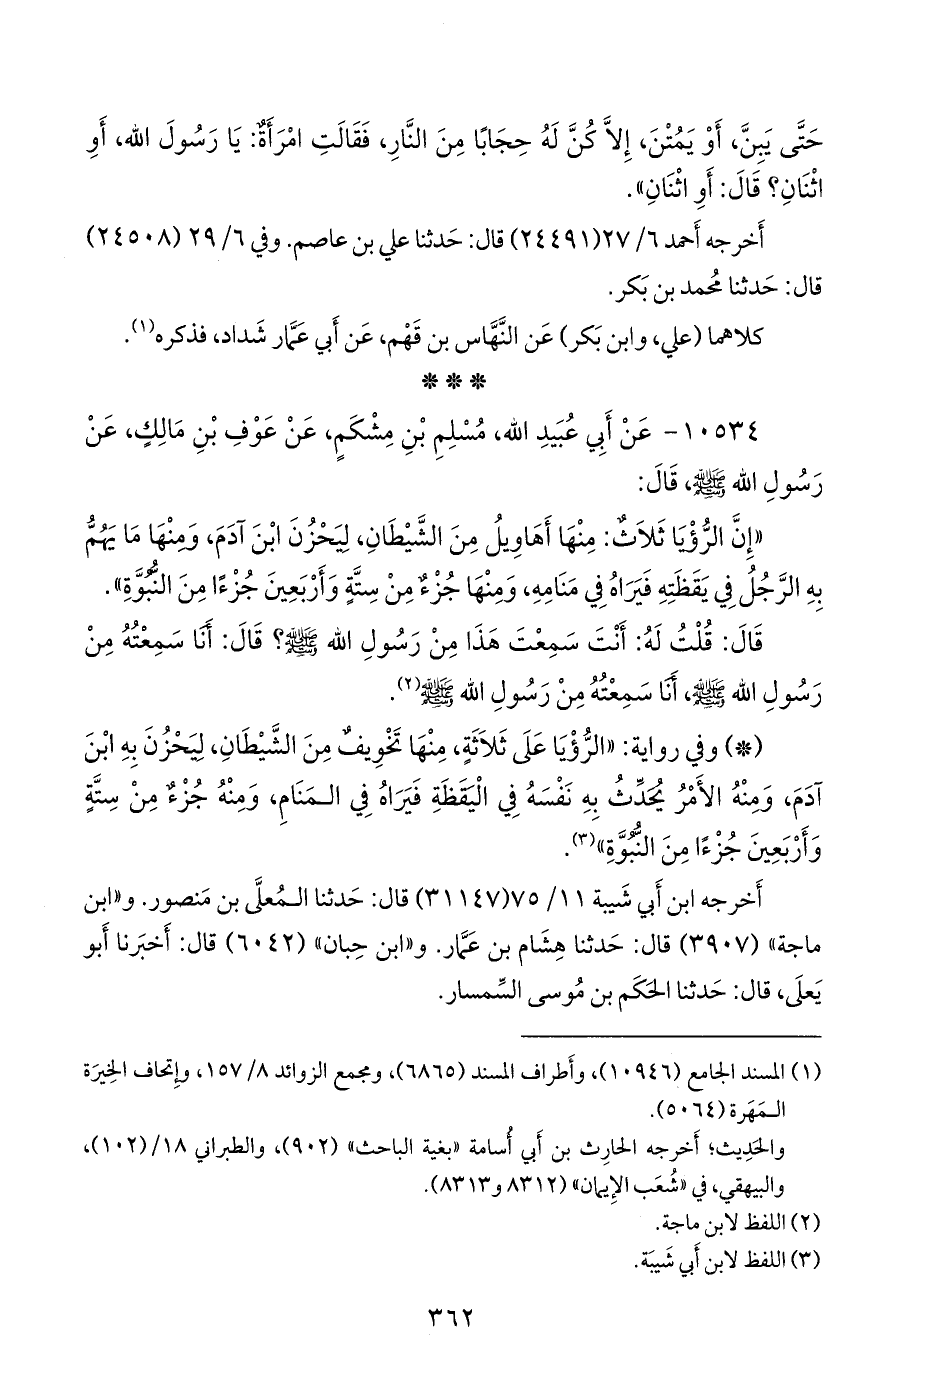 حَتَّى يَبِنَّ، أَوْ يَمُتْنَ، إِلاَّ كُنَّ لَهُ حِجَابًا مِنَ النَّارِ، فَقَالَتِ امْرَأَةٌ: يَا رَسُولَ الله، أَوِ
اثْنَانِ؟ قَالَ: أَوِ اثْنَانِ».
أَخرجه أَحمد ٦/ ٢٧(٢٤٤٩١) قال: حَدثنا علي بن عاصم. وفي ٦/ ٢٩ (٢٤٥٠٨)
قال: حَدثنا مُحمد بن بَكر.
كلاهما (علي، وابن بَكر) عَن النَّهَّاس بن قَهْم، عَن أَبي عَمَّار شَداد، فذكره(١).
* * *
١٠٥٣٤- عَنْ أَبِي عُبَيدِ الله، مُسْلِمِ بْنِ مِشْكَمٍ، عَنْ عَوْفِ بْنِ مَالِكٍ، عَنْ
رَسُولِ الله ﷺ، قَالَ:
«إِنَّ الرُّؤْيَا ثَلاَثٌ: مِنْهَا أَهَاوِيلُ مِنَ الشَّيْطَانِ، لِيَحْزُنَ ابْنَ آدَمَ، وَمِنْهَا مَا يَهُمُّ
بِهِ الرَّجُلُ فِي يَقَظَتِهِ فَيَرَاهُ فِي مَنَامِهِ، وَمِنْهَا جُزْءٌ مِنْ سِتَّةٍ وَأَرْبَعِينَ جُزْءًا مِنَ النُّبُوَّةِ».
قَالَ: قُلْتُ لَهُ: أَنْتَ سَمِعْتَ هَذَا مِنْ رَسُولِ الله ﷺ؟ قَالَ: أَنَا سَمِعْتُهُ مِنْ
رَسُولِ الله ﷺ، أَنَا سَمِعْتُهُ مِنْ رَسُولِ الله ﷺ(٢).
(*) وفي رواية: «الرُّؤْيَا عَلَى ثَلاَثَةٍ، مِنْهَا تَخْوِيفٌ مِنَ الشَّيْطَانِ، لِيَحْزُنَ بِهِ ابْنَ
آدَمَ، وَمِنْهُ الأَمْرُ يُحَدِّثُ بِهِ نَفْسَهُ فِي الْيَقَظَةِ فَيَرَاهُ فِي الـمَنَامِ، وَمِنْهُ جُزْءٌ مِنْ سِتَّةٍ
وَأَرْبَعِينَ جُزْءًا مِنَ النُّبُوَّةِ»(٣).
أَخرجه ابن أَبي شَيبة ١١/ ٧٥(٣١١٤٧) قال: حَدثنا الـمُعلَّى بن مَنصور. و«ابن
ماجة» (٣٩٠٧) قال: حَدثنا هِشَام بن عَمَّار. و«ابن حِبان» (٦٠٤٢) قال: أَخبَرنا أَبو
يَعلَى، قال: حَدثنا الحَكَم بن مُوسى السِّمسار.
(١) المسند الجامع (١٠٩٤٦)، وأَطراف المسند (٦٨٦٥)، ومجمع الزوائد ٨/ ١٥٧، وإِتحاف الخِيرَة
الـمَهَرة (٥٠٦٤).
والحَدِيث؛ أَخرجه الحارِث بن أَبي أُسامة «بغية الباحث» (٩٠٢)، والطبراني ١٨/(١٠٢)،
والبيهقي، في «شُعَب الإِيمان» (٨٣١٢ و٨٣١٣).
(٢) اللفظ لابن ماجة.
(٣) اللفظ لابن أَبي شَيبَة.
٣٦٢